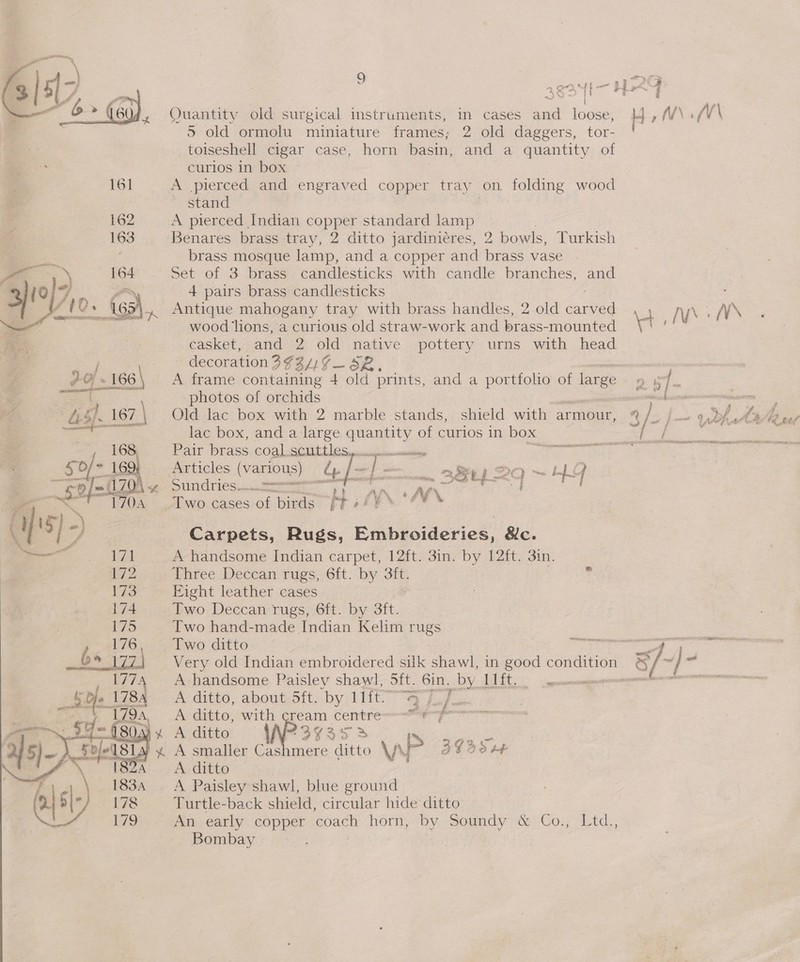 9
3 | 5 | -
38341 - 429
6 - 160 Quantity old surgical instruments, in cases and loose,
5 old ormolu miniature frames; 2 old daggers, tor-
toiseshell cigar case, horn basin, and a quantity of
curios in box
161 A pierced and engraved copper tray on folding wood
stand
162 A pierced Indian copper standard lamp
163 Benares brass tray, 2 ditto jardinières, 2 bowls, Turkish
brass mosque lamp, and a copper and brass vase
164 Set of 3 brass candlesticks with candle branches, and
4 pairs brass candlesticks
10 - 165 Antique mahogany tray with brass handles, 2 old carved
wood lions, a curious old straw-work and brass-mounted
casket, and 2 old native pottery urns with head
decoration 38348 - 52.
20/- 166 A frame containing 4 old prints, and a portfolio of large
photos of orchids
167 Old lac box with 2 marble stands, shield with armour,
lac box, and a large quantity of curios in box
168 Pair brass coal scuttles
50/- 169 Articles (various)
170 Sundries
170A Two cases of birds
Carpets, Rugs, Embroideries, &c.
171 A handsome Indian carpet, 12ft. 3in. by 12ft. 3in.
172 Three Deccan rugs, 6ft. by 3ft.
173 Eight leather cases
174 Two Deccan rugs, 6ft. by 3ft.
175 Two hand-made Indian Kelim rugs
176 Two ditto
177 Very old Indian embroidered silk shawl, in good condition
177A A handsome Paisley shawl, 5ft. 6in. by 11ft.
178A A ditto, about 5ft. by 11ft.
179A A ditto, with cream centre
180A A ditto 38353
181A A smaller Cashmere ditto 38354
182A A ditto
183A A Paisley shawl, blue ground
178 Turtle-back shield, circular hide ditto
179 An early copper coach horn, by Soundy & Co., Ltd.,
Bombay